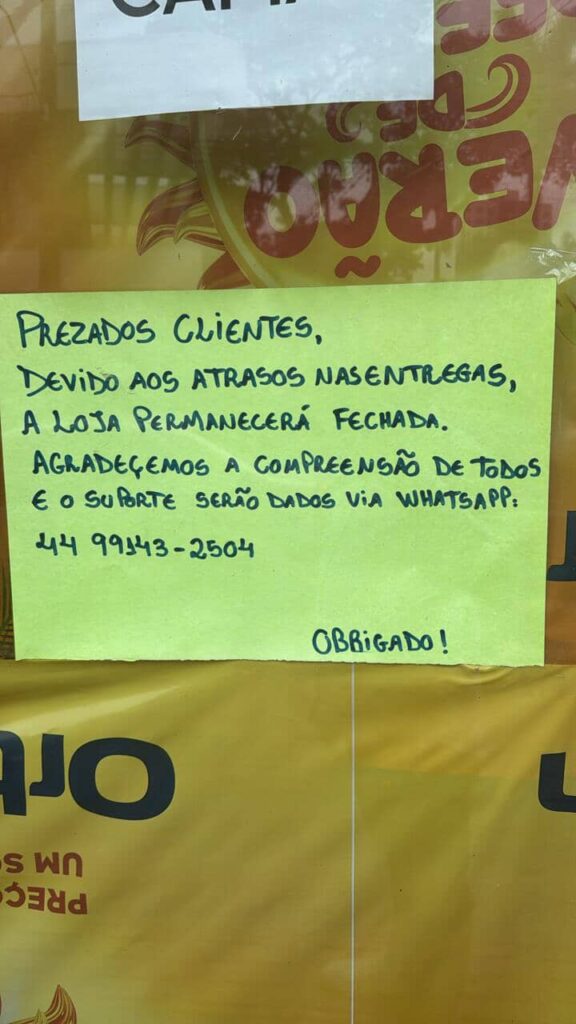 PREZADOS CLIENTES,
DEVIDO AOS ATRASOS NAS ENTREGAS,
A LOJA PERMANECERÁ FECHADA.
AGRADEÇEMOS A COMPREENSÃO DE TODOS
E O SUPORTE SERÃO DADOS VIA WHATSAPP:
44 99143-2504
OBRIGADO!
VERÃO
DE
PREÇO
UM SO
Orto